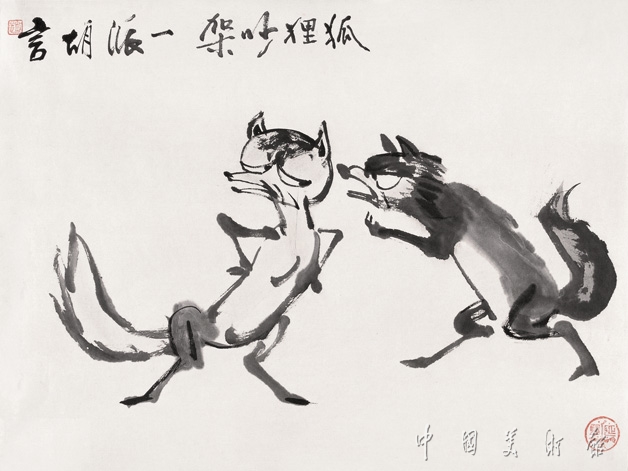 狐狸吵架一派胡言
中国美术馆